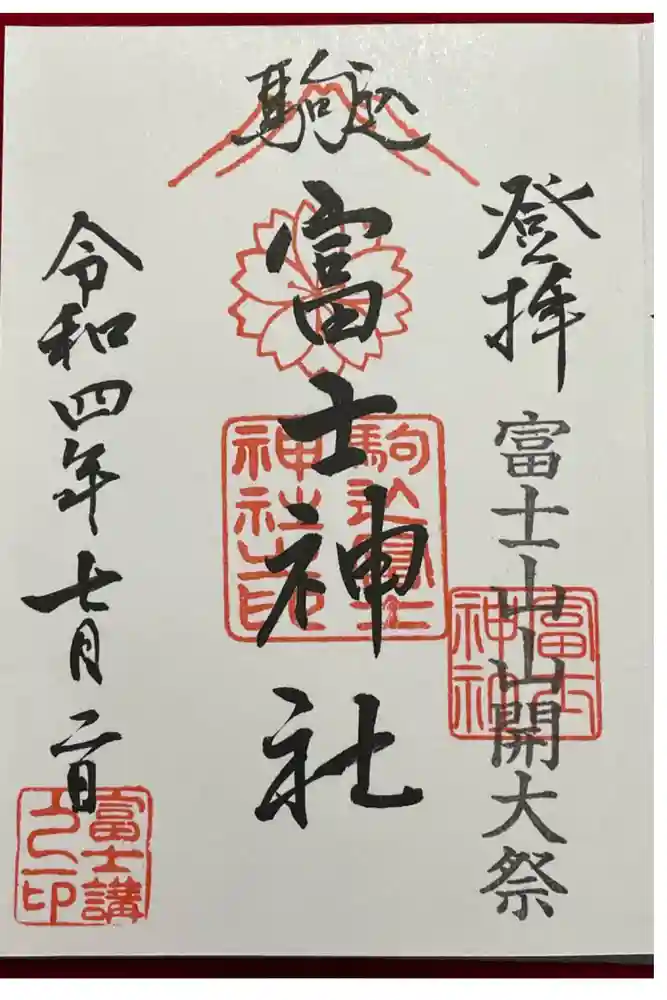 登拝
富士山山開大祭
駒込
富士神社
令和四年七月二日
駒込富士
神社之印
富士
神社
富士講
之印